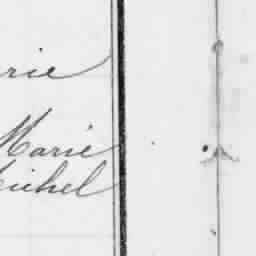 rie
Marie
Michel